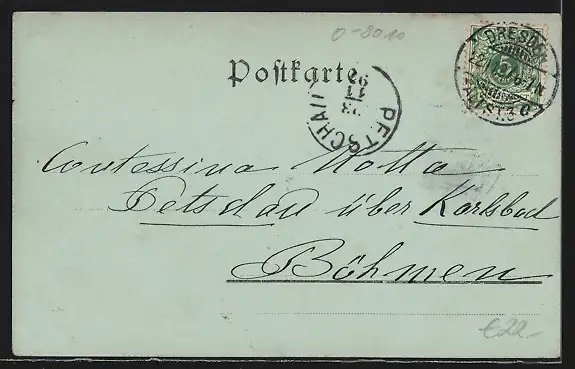 0-8010
Postkarte
DRESDEN
5
PETSCHAU
23
11
97
Contessina Motta
Petschau über Karlsbad
Böhmen
€22-